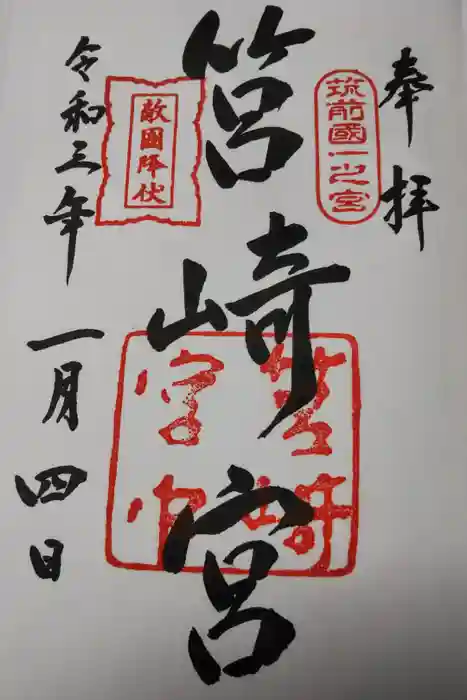 奉拝
筑前國一之宮
筥崎宮
筥崎宮印
敵國降伏
令和三年一月四日